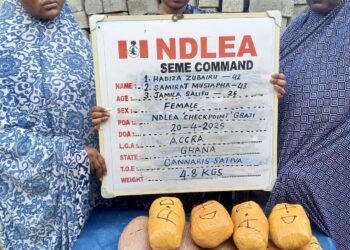 NDLEA
SEME COMMAND
1. HABIZA ZUBAIRU - 42
NAME: 2. SAMIRAT MUSTAPHA - 43
AGE: 3. JAMILA SALIFU - 38
SEX: FEMALE
POA: NDLEA 'CHECKPOINT' GBAJI
DOA: 20-4-2025
L.G.A: ACCRA
STATE: GHANA
T.O.E: CANNABIS SATIVA
WEIGHT: 4.8 KGS